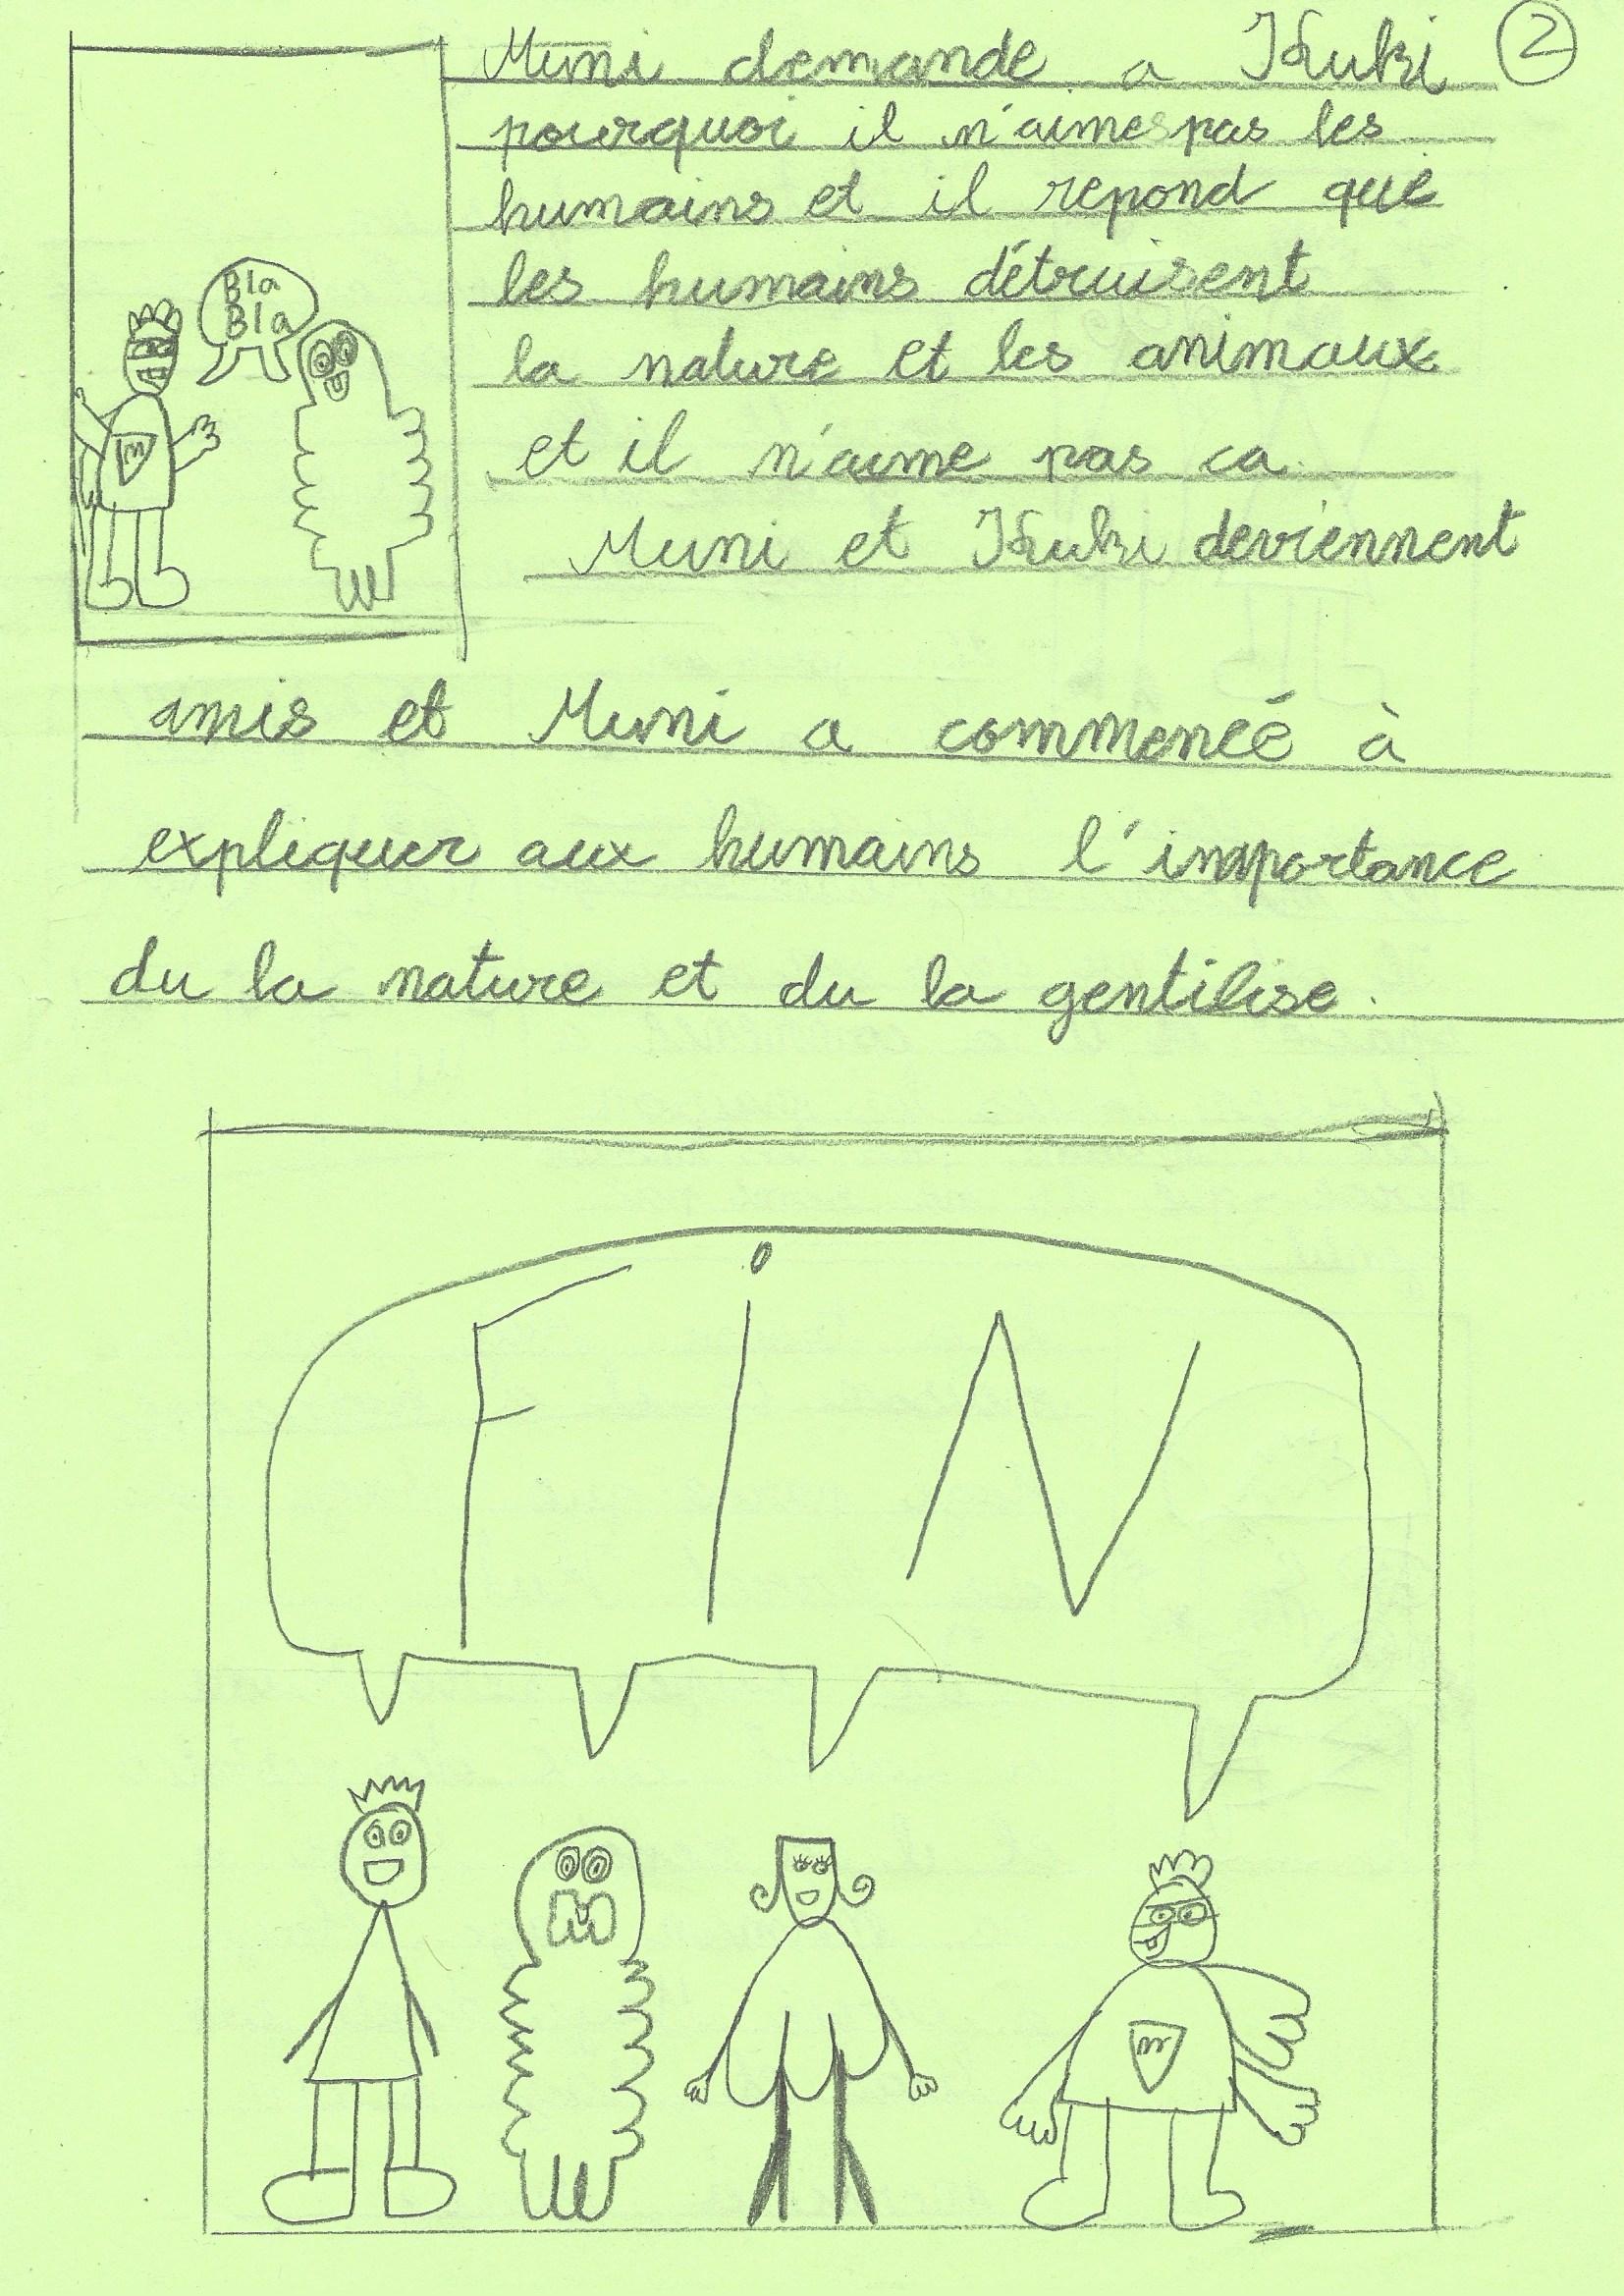 Muni demande a Kuki ②
pourquoi il n'aimes pas les
humains et il repond que
les humains détruisent
la nature et les animaux
et il n'aime pas ca.
Muni et Kuki deviennent
amis et Muni a commencé à
expliquer aux humains l'importance
du la nature et du la gentilise.
Bla
Bla
m
FiN
m